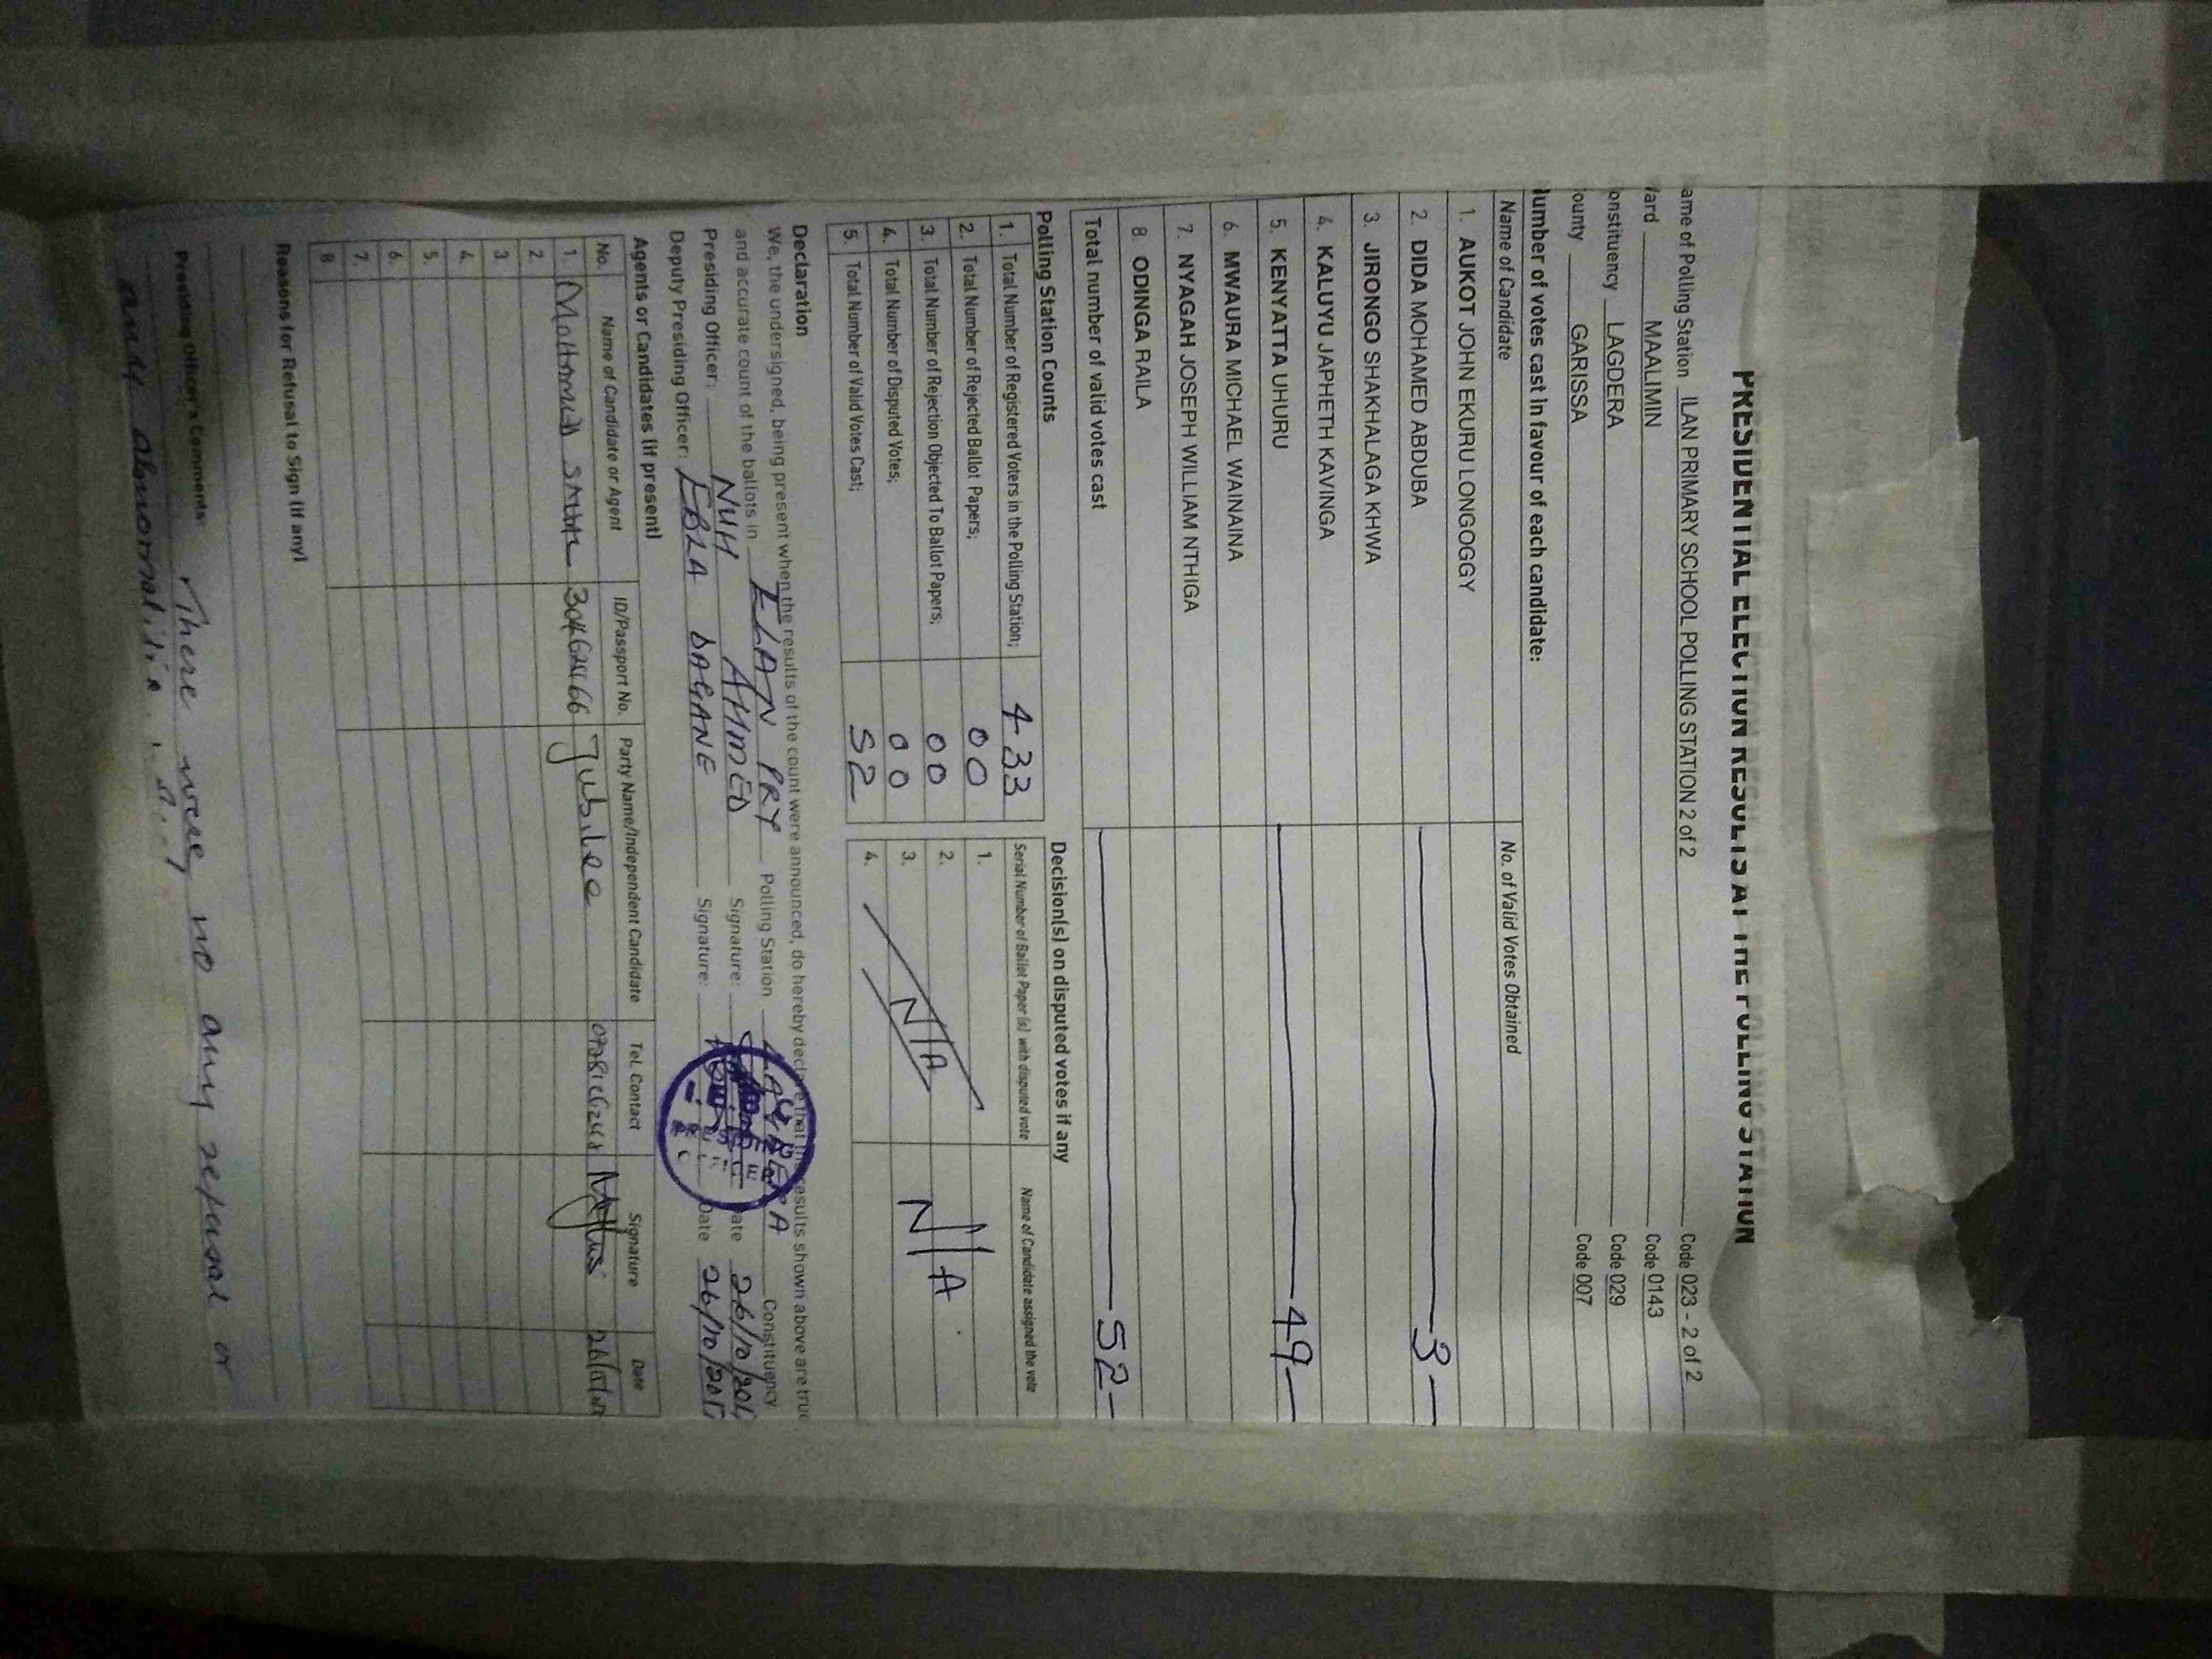 PRESIDENTIAL ELECTION RESULTS AT THE POLLING STATION
ame of Polling Station ILAN PRIMARY SCHOOL POLLING STATION 2 of 2 Code 023 - 2 of 2
Vard MAALIMIN Code 0143
onstituency LAGDERA Code 029
ounty GARISSA Code 007
Number of votes cast in favour of each candidate:
Name of Candidate No. of Valid Votes Obtained
1. AUKOT JOHN EKURU LONGOGGY
2. DIDA MOHAMED ABDUBA 3
3. JIRONGO SHAKHALAGA KHWA
4. KALUYU JAPHETH KAVINGA
5. KENYATTA UHURU 49
6. MWAURA MICHAEL WAINAINA
7. NYAGAH JOSEPH WILLIAM NTHIGA
8. ODINGA RAILA
Total number of valid votes cast 52
Polling Station Counts
1. Total Number of Registered Voters in the Polling Station; 433
2. Total Number of Rejected Ballot Papers; 00
3. Total Number of Rejection Objected To Ballot Papers; 00
4. Total Number of Disputed Votes; 00
5. Total Number of Valid Votes Cast; 52
Decision(s) on disputed votes if any
Serial Number of Ballot Paper (s) with disputed vote Name of Candidate assigned the vote
1.
2.
3. N/A N/A
4.
Declaration
We, the undersigned, being present when the results of the count were announced, do hereby declare that the results shown above are true
and accurate count of the ballots in ELAN PRY Polling Station LAGDERA Constituency
Presiding Officer: NUH AHMED Signature: Date 26/10/201
Deputy Presiding Officer: EBLA DAGANE Signature: Date 26/10/2017
Agents or Candidates (if present)
No. Name of Candidate or Agent ID/Passport No. Party Name/Independent Candidate Tel. Contact Signature Date
1. Mohamed Jubilee
2.
3.
4.
5.
6.
7.
8.
Reasons for Refusal to Sign (if any)
Presiding Officer's Comments: There were no any refusal or
any abnormalitie